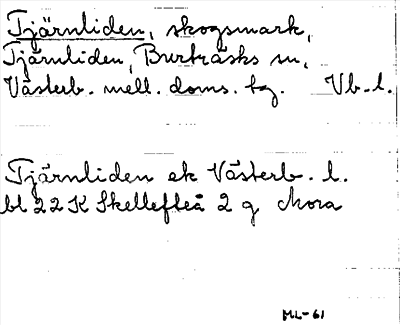 Tjärnliden, skogsmark,
Tjärnliden, Burträsks sn,
Västerb. mell. doms. tg. Vb-l.
Tjärnliden ek Västerb. l.
bl 22 K Skellefteå 2 g Mora
ML-61